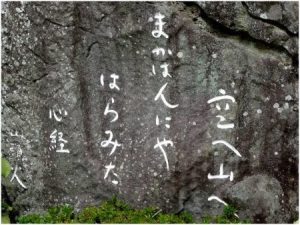 空へ山へ
まかはんにや
はらみた
心経